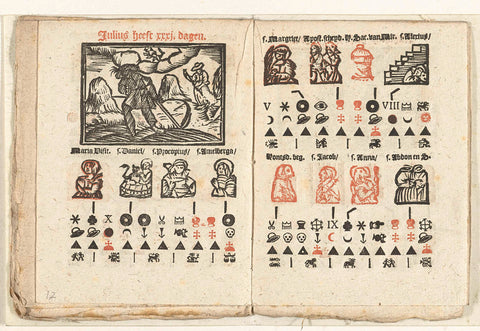 Julius heeft xxxj. dagen.
Maria Visit. s. Daniel/ s. Procopius/ s. Amelberga/
X
12
s. Margriet/ Apost. scheyd. H. Sac. van Mir. s. Alexius/
V VIII
s. Jacob/ s. Anna/ s. Abdon en S.
IX